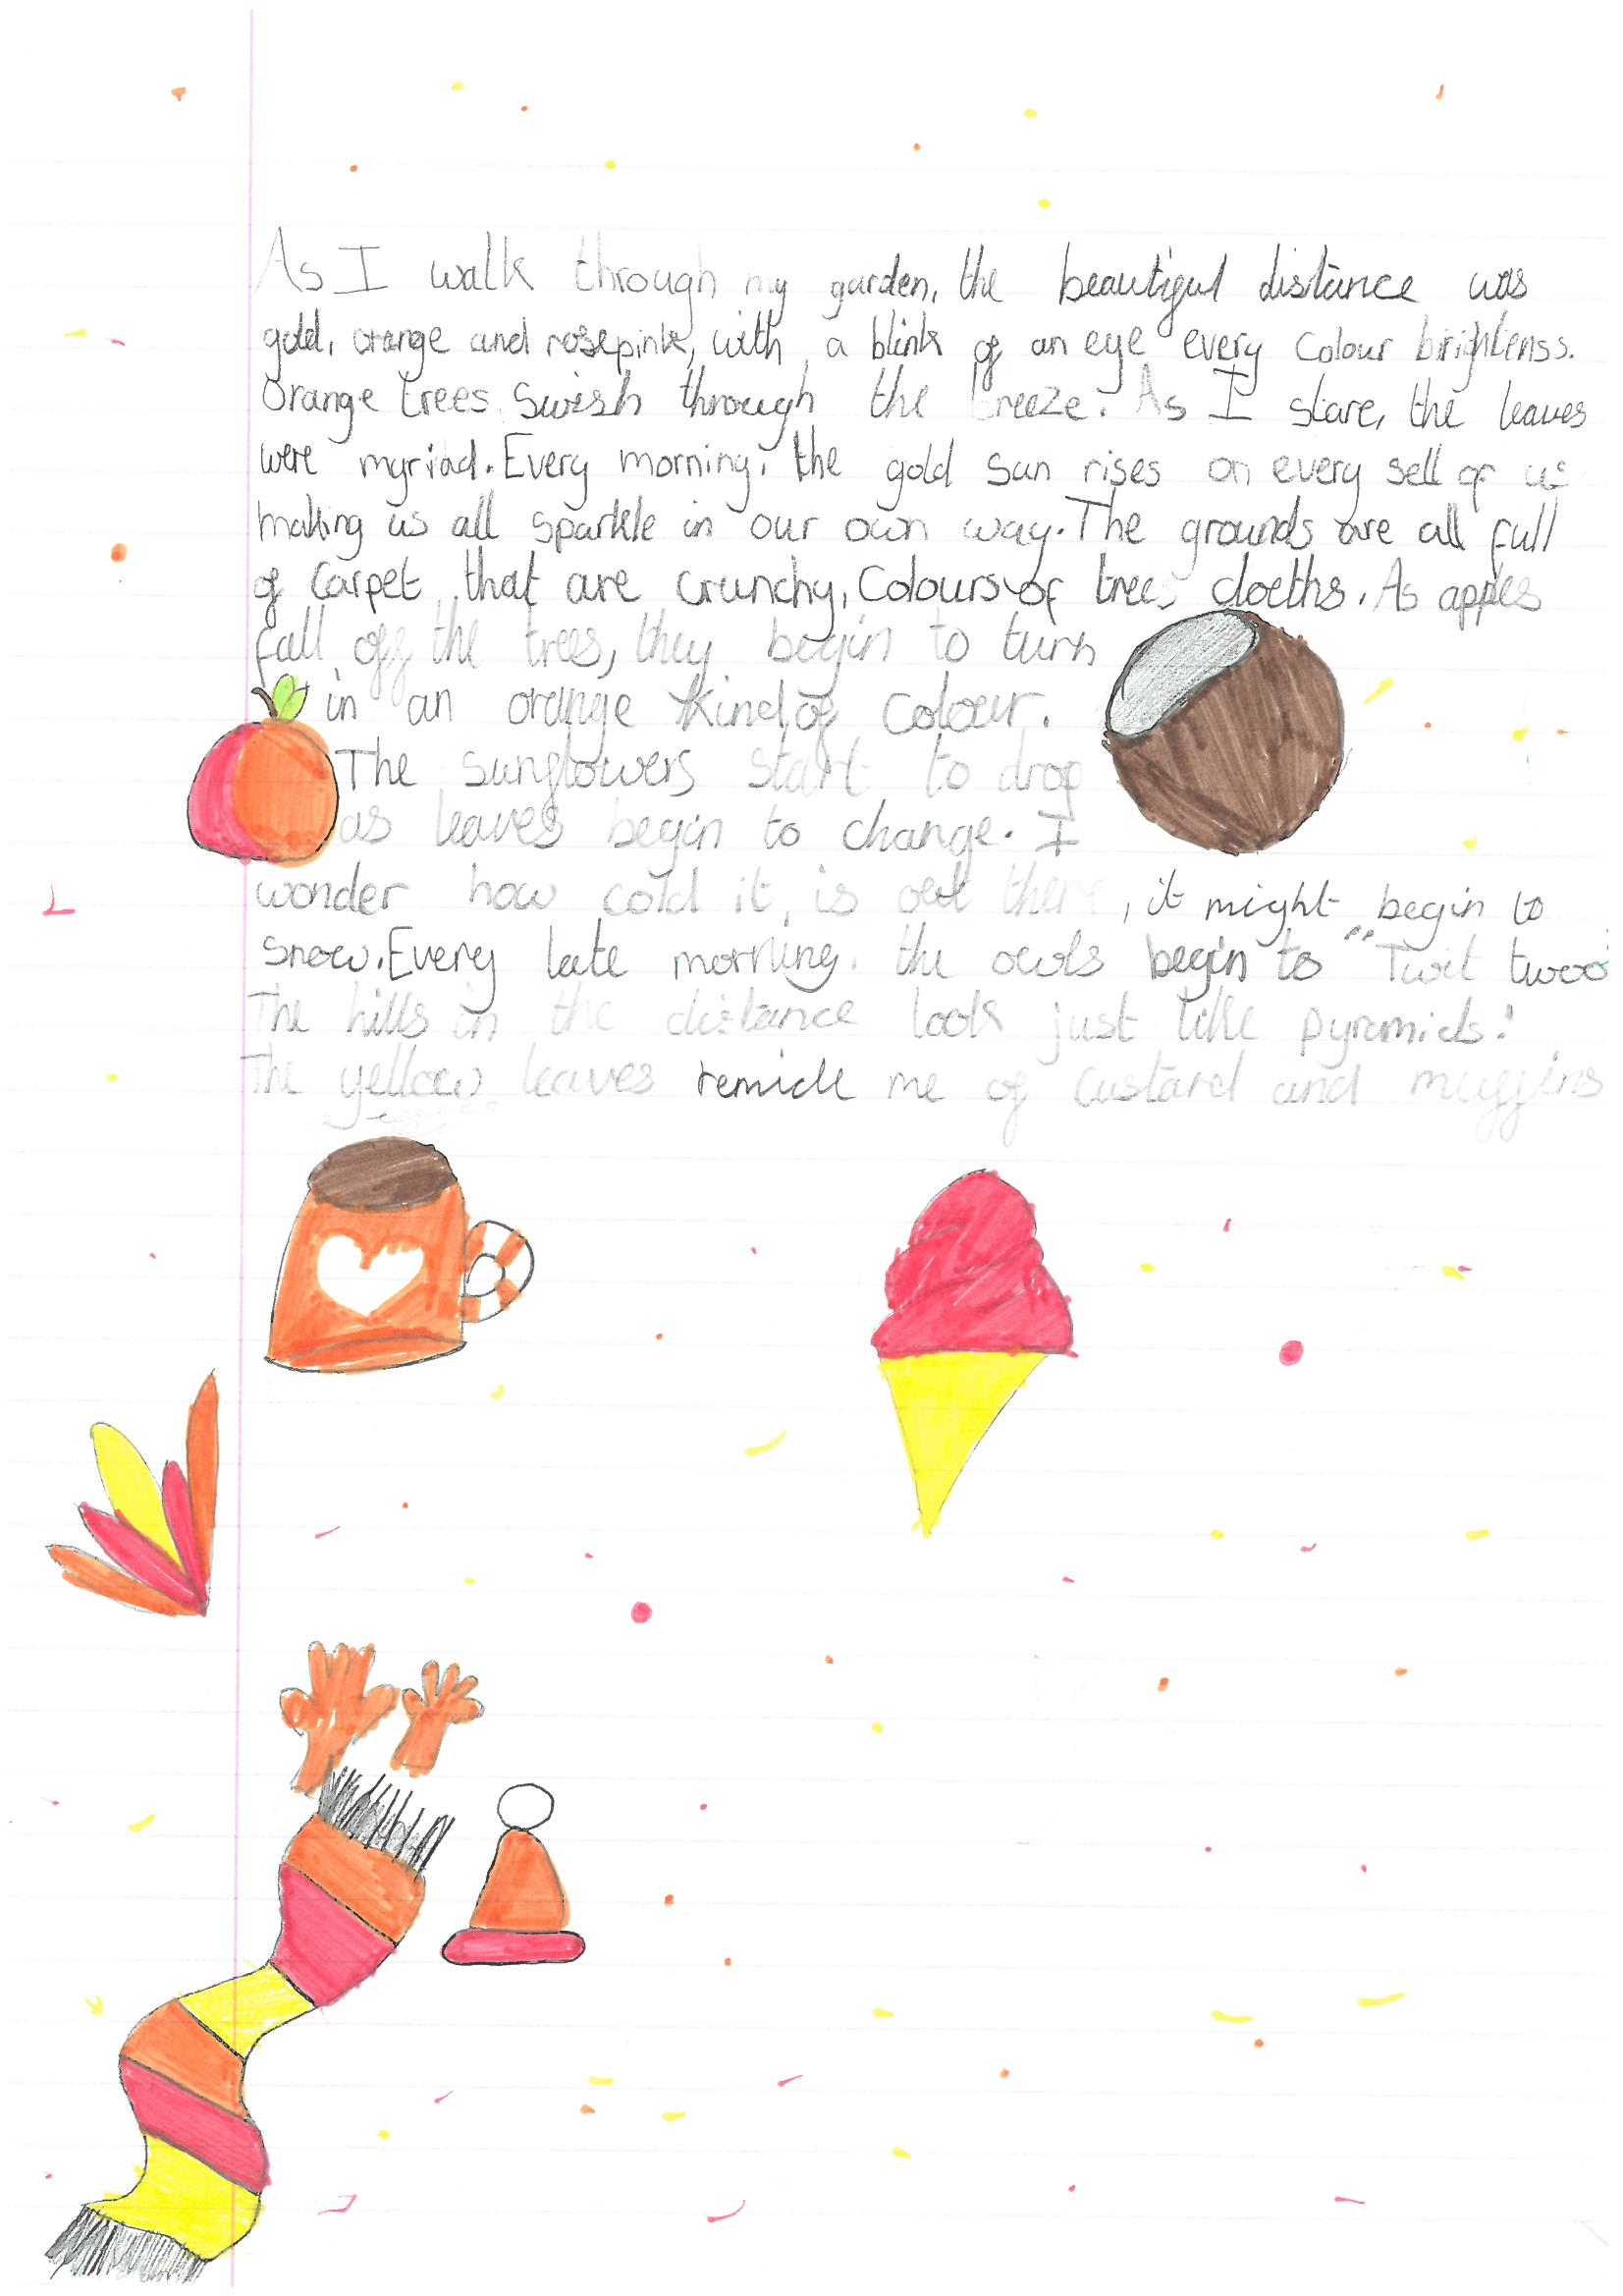 As I walk through my garden, the beautiful distance was
gold, orange and rosepink, with a blink of an eye every colour brightenss.
Orange trees swish through the breeze. As I stare, the leaves
were myriad. Every morning, the gold sun rises on every sell of us
making us all sparkle in our own way. The grounds are all full
of carpet that are crunchy, Colours of trees cloeths. As apples
fall off the trees, they begin to turn
in an orange kind of colour.
The sunflowers start to drop
as leaves begin to change. I
wonder how cold it is out there, it might begin to
snow. Every late morning, the owls begin to "Twit twoo
The hills in the distance look just like pyramids!
The yellow leaves remide me of custard and muffins